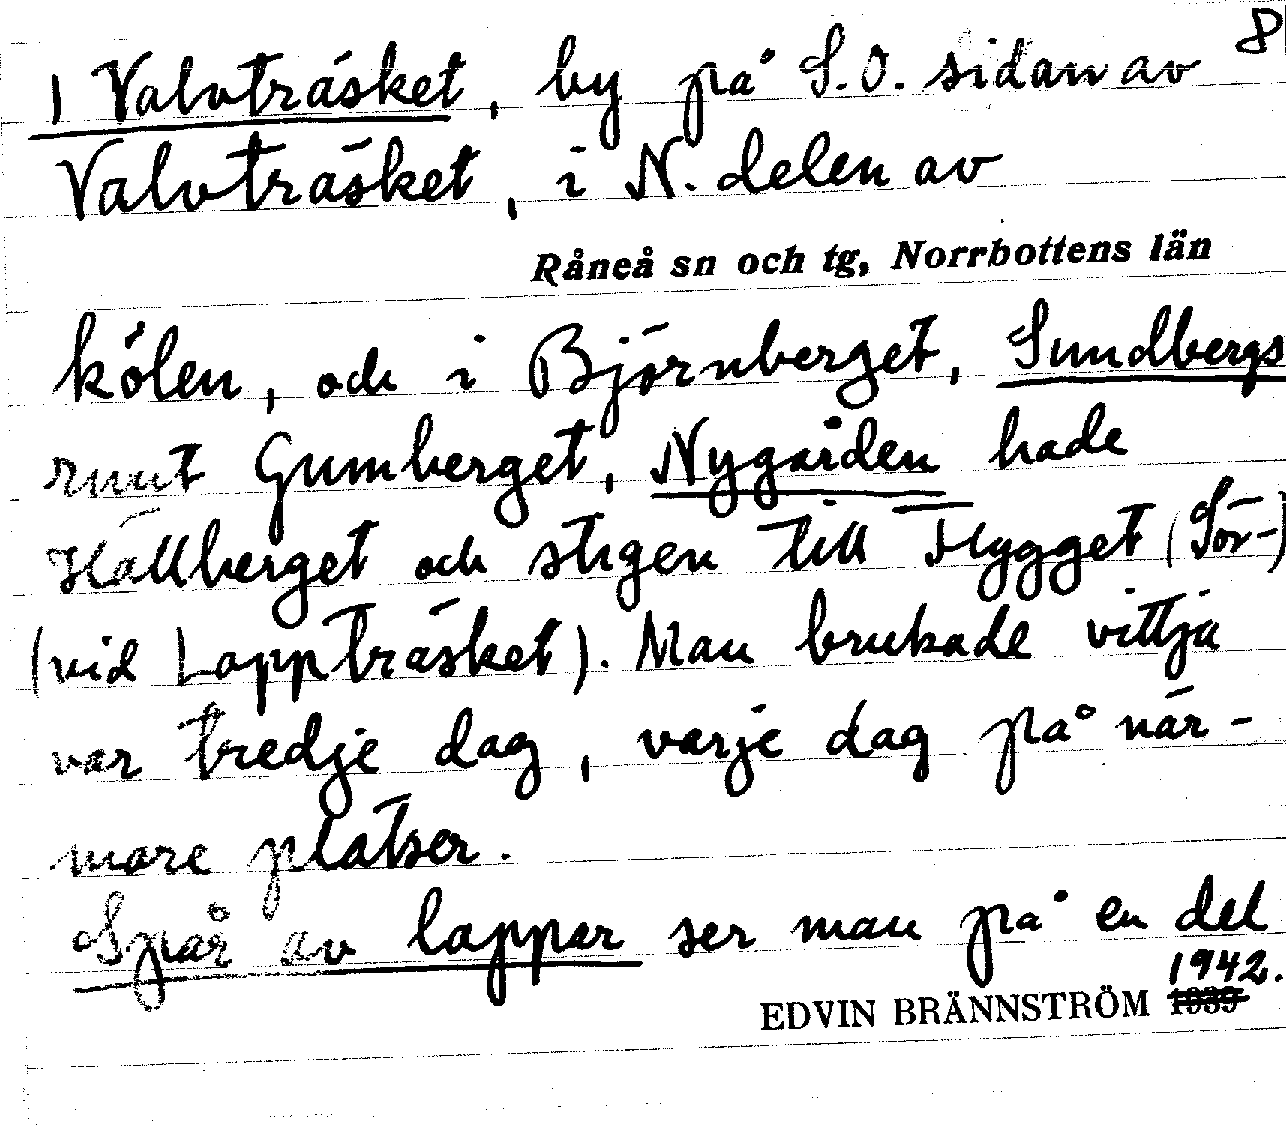 8
1 Valvträsket, by på S.O. sidan av
Valvträsket, i N. delen av
Råneå sn och tg, Norrbottens län
kölen, och i Björnberget, Sundbergs
runt Gumberget, Nygården hade
Hällberget och stigen till Flygget (Sör-)
(vid Lappträsket). Man brukade vittja
var tredje dag, varje dag på när-
mare platser.
Spår av lappar ser man på en del
1942.
EDVIN BRÄNNSTRÖM 1939